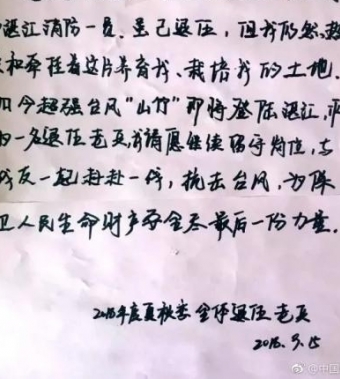 湛江消防一员。虽已退伍，但我仍然热
和牵挂着这片养育我、栽培我的土地.
如今超强台风“山竹”即将登陆湛江，作
为一名退伍老兵我请愿继续留守岗位，与
战友一起赶赴一线，抗击台风，为保
卫人民生命财产安全尽最后一份力量.
2018年度夏秋季全体退伍老兵
2018.9.15
@中国